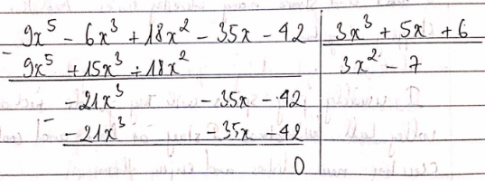 9x⁵ - 6x³ + 18x² - 35x - 42 | 3x³ + 5x + 6
- 9x⁵ + 15x³ + 18x² | 3x² - 7
- 21x³ - 35x - 42
- - 21x³ - 35x - 42
0